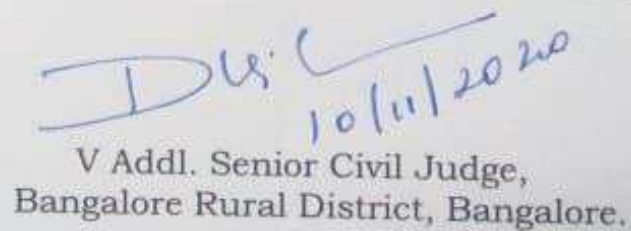 10/11/2020
V Addl. Senior Civil Judge,
Bangalore Rural District, Bangalore.